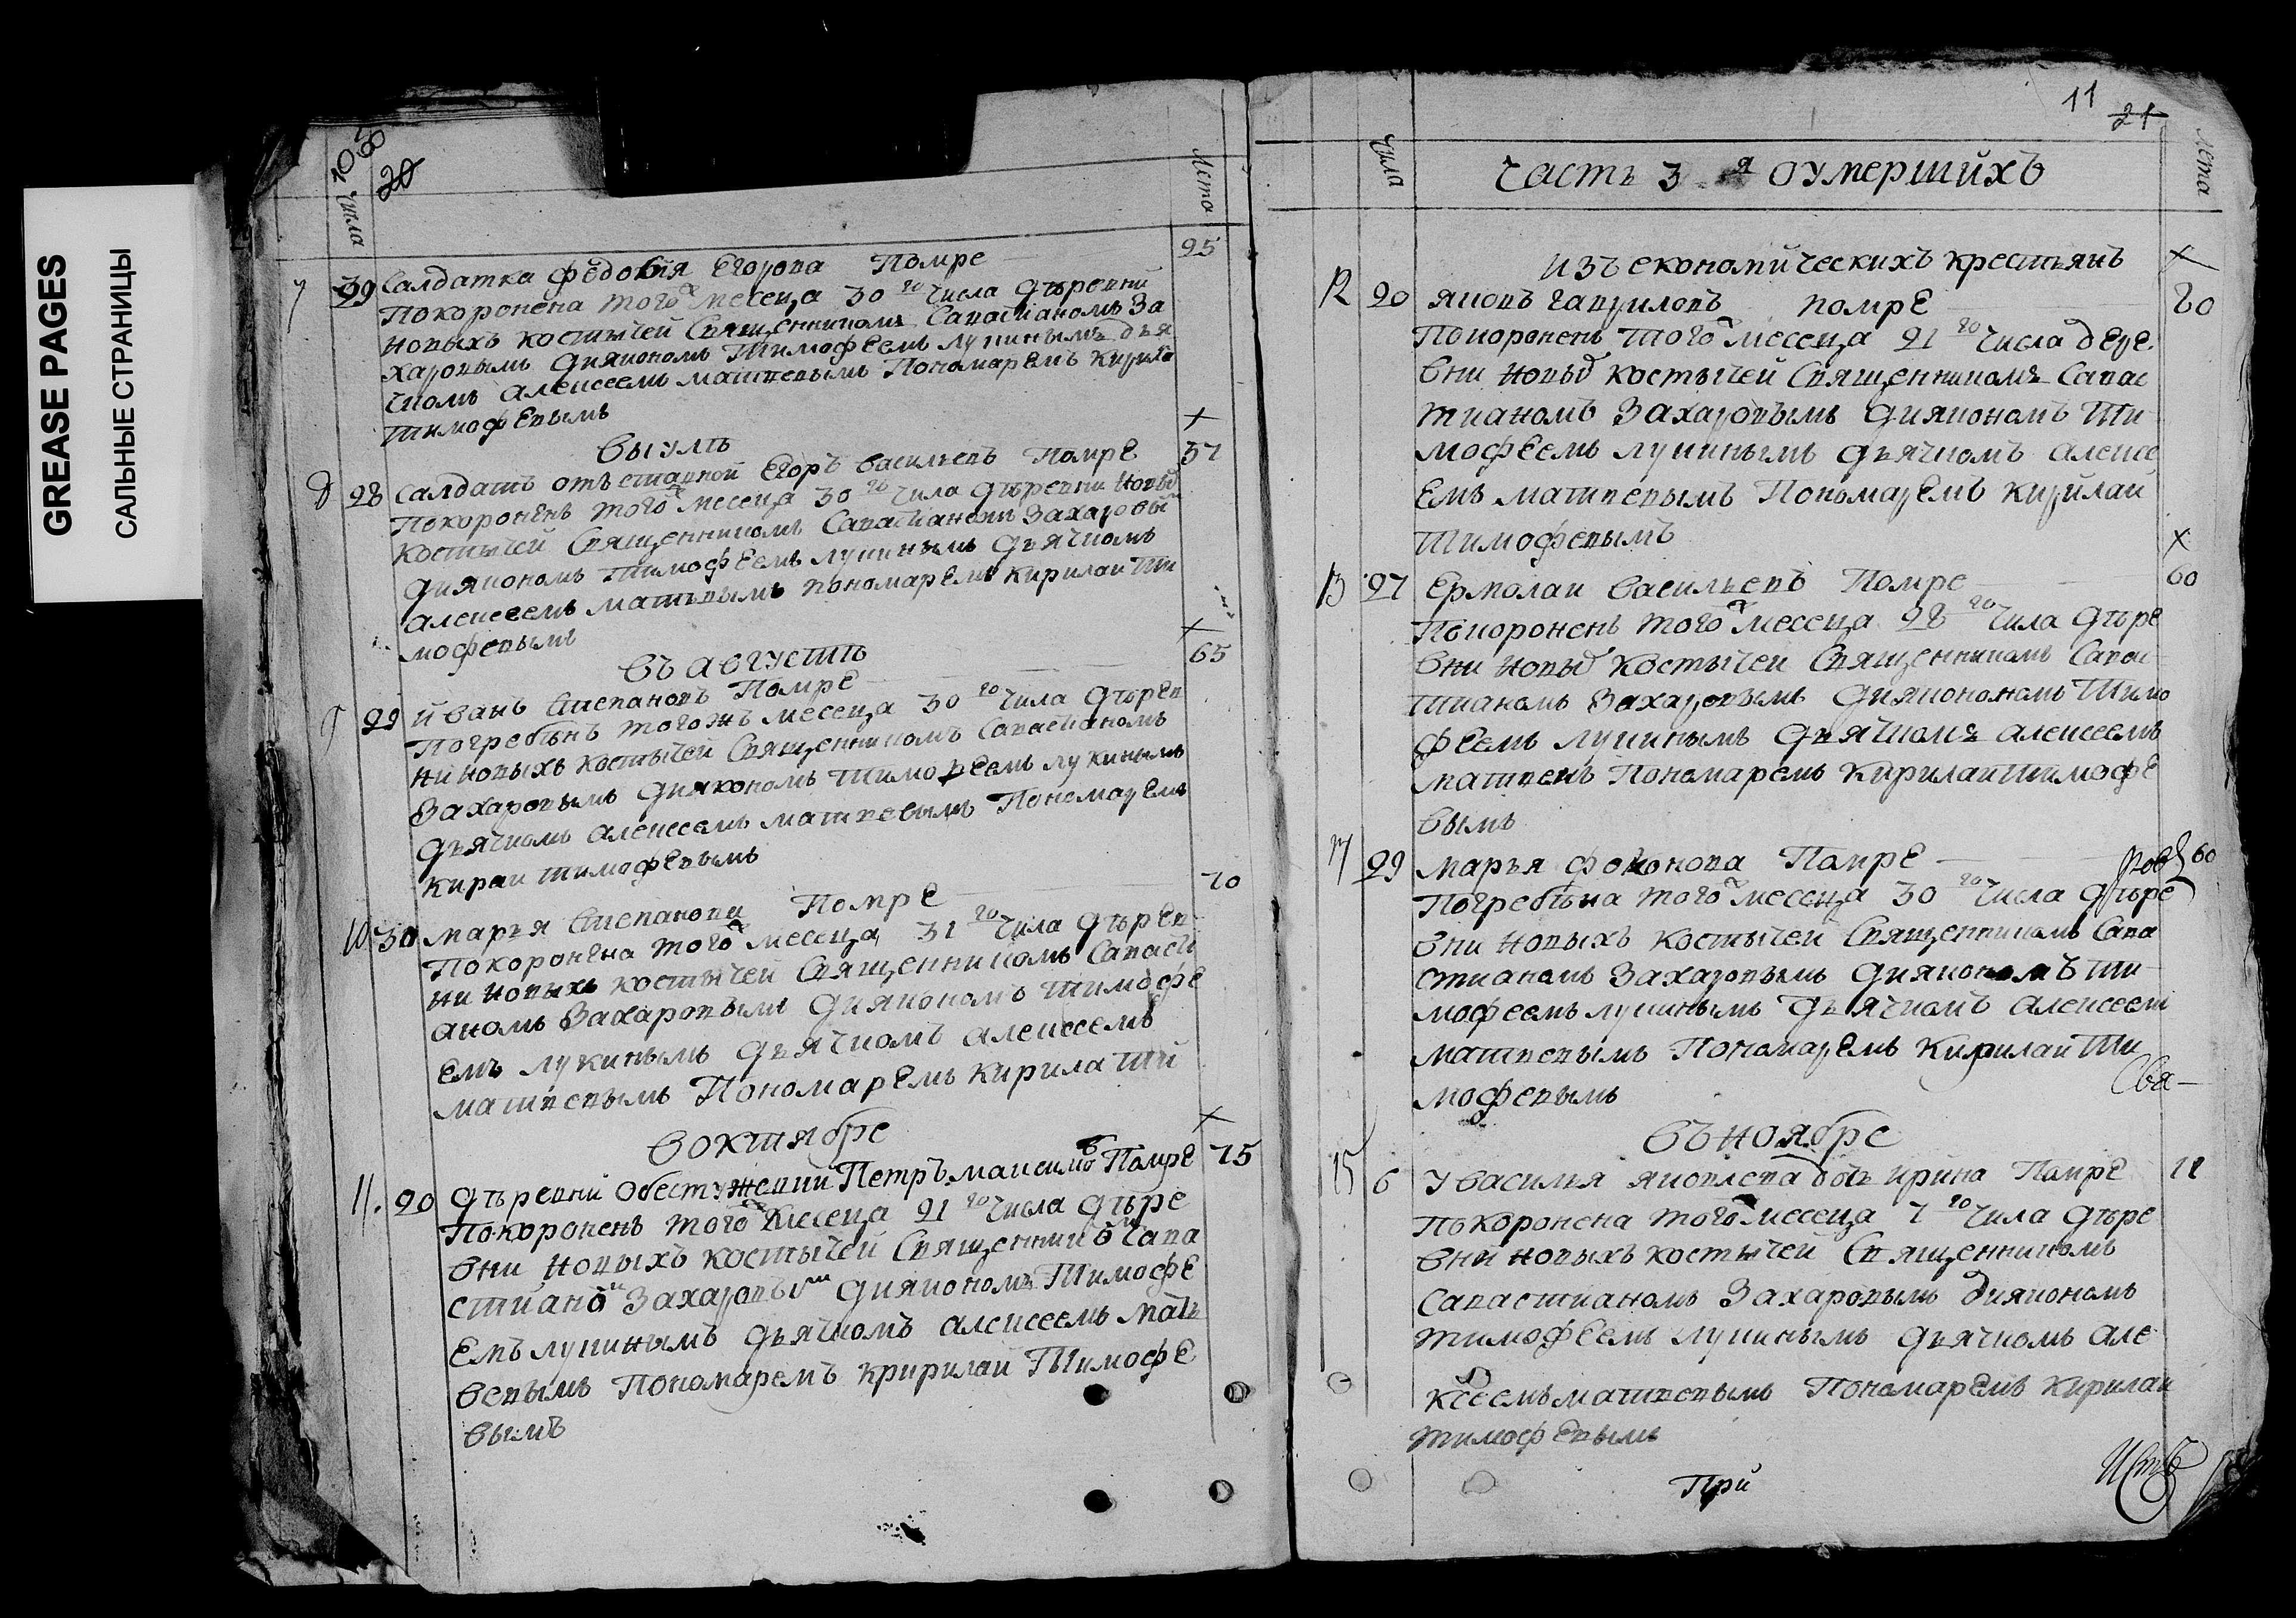 GREASE PAGES
САЛЬНЫЕ СТРАНИЦЫ
10 об
20
числа
Лета
25
7 29 Салдатка Федосия Егорова Помре
Покоронена того ж месеца 30 го числа дѣревни
новыхъ костычей Священникомъ Савастианомъ За
харовымъ диякономъ Тимофеемъ лукинымъ дья
чкомъ алексеемъ матвевымъ Пономаремъ Кирила
тимофевымъ
выулѣ
+
8 28 Салдатъ отъставной Егоръ васильевъ Помре 57
Покороненъ того ж месеца 30 го чила дѣревни новы х
костычей Священникомъ Савастианомъ Захаровы м
диякономъ тимофеемъ лукинымъ дьячкомъ
алексеемъ матвевымъ пономаремъ кирилаи ти
мофевымъ
въ августѣ
+
9 29 иванъ Степановъ Помре 65
Погребѣнъ тогожъ месеца 30 го чила дѣрев
ни новыхъ костычей Священникомъ Савастианомъ
Захаровымъ дияконом тимофеемъ лукинымъ
дьячкомъ алексеемъ матвевымъ Пономаремъ
кираи тимофевымъ
10 30 марья Степанова Помре 70
Покоронена того ж месеца 31 го чила дѣрев
ни новыхъ костычей Священникомъ Савасти
аномъ Захаровымъ диякономъ тимофе
емъ лукинымъ дьячкомъ алексеемъ
матвевымъ Пономаремъ кирила ти
воктябре
+
11. 20 дѣревни Петръ максимо въ Помре 75
Покороненъ того ж месеца 21 го числа дѣре
вни новыхъ костычей Священнико м Сава
стиано м Захаровы м дияконом Тимофе
емъ лукинымъ дьячкомъ алексеемъ мать
вевымъ Пономаремъ кририлаи Тимофе
вымъ
11
21
числа
Лета
Часть 3 я оумершихъ
изъ економическихъ крестьянъ
+
12 20 яковъ гавриловъ помре 80
Покороненъ того ж месеца 21 го числа дере
вни новы х костычей Священникомъ Савас
тианомъ Захаровымъ диякономъ ти
мофеемъ лукинымъ дьячкомъ алексе
емъ матвевымъ Пономаремъ кирилаи
тимофевымъ
+
13 27 Ермолаи васильевъ Помре 60
Покороненъ того ж месеца 28 го чила дѣре
вни новы х костычеи Священникомъ Савас
тианомъ Захаровымъ дияконономъ тимо
феемъ лукинымъ дьячкомъ алексеемъ
матвемъ Пономаремъ кирилаи тимофе
вымъ
14 29 марья Помре 60
Погребѣна того ж месеца 30 го числа дѣре
вни новыхъ костычеи Священникомъ Сава
стианомъ Захаровымъ дияконом ъ ти
мофеемъ лукинымъ дьячкомъ алексеем
матвевымъ Пономаремъ Кирилаи ти
мофевымъ
Свя-
въ ноябре
15 6 У василия яковлева дочь ирина Помре
Покоронена того ж месеца 7 го чила дѣре
вни новыхъ костычей Священникомъ
Савастианомъ Захаровымъ дияконом
тимофеемъ лукинымъ дьячкомъ але
ксеемъ матвевымъ Пономаремъ кирилаи
тимофевымъ
При